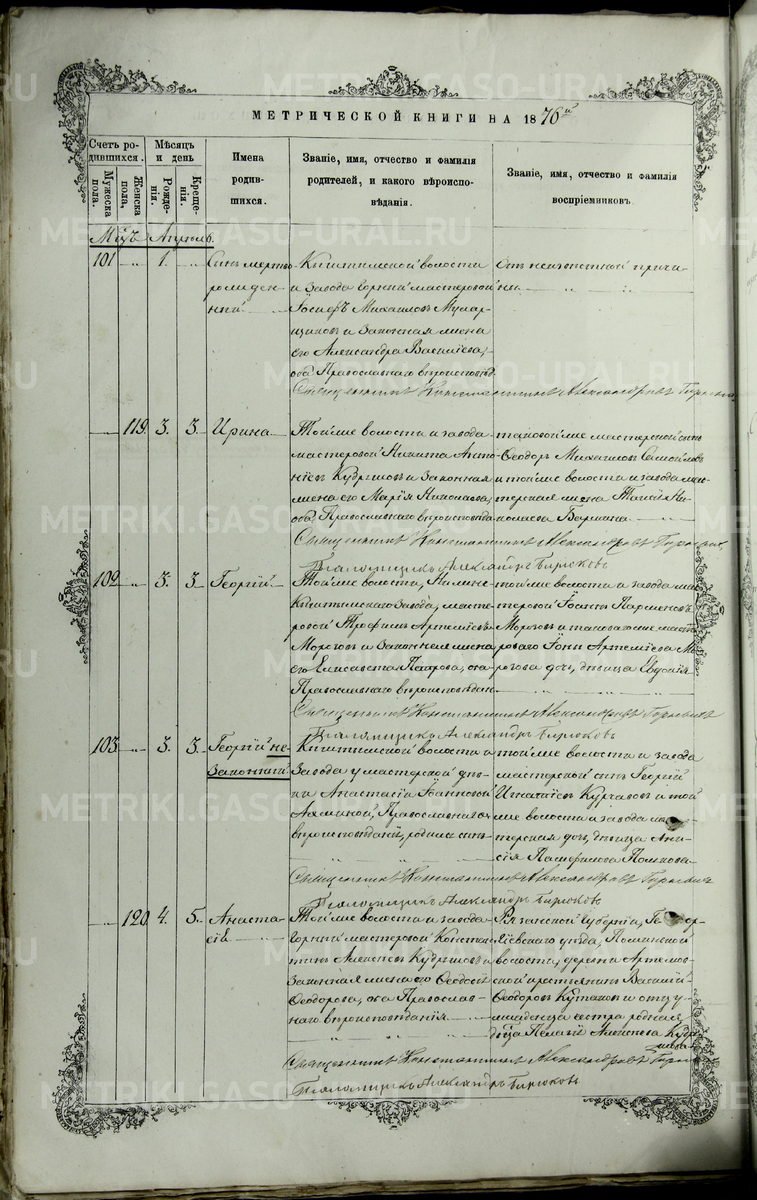 МЕТРИЧЕСКОЙ КНИГИ НА 1876й
Счетъ ро-
дившихся.
Мужеска
пола.
Женска
пола.
Мѣсяцъ
и день
Рожде-
нія.
Креще-
нія.
Имена
родив-
шихся.
Званіе, имя, отчество и фамилія
родителей, и какого вѣроиспо-
вѣданія.
Званіе, имя, отчество и фамилія
воспріемниковъ.
Мцъ Апрѣль.
101 „ 1. „
Сынъ мертво
рожден-
ный
Кыштымской волости
и завода горный мастеровой
Іосифъ Михаиловъ
и Законная жена
его Александра Василіева,
оба Православнаго вѣроисповѣд.
Отъ неизвѣстной причи-
ны.
Священникъ Константинъ Александровъ
119. 3. 3.
Ирина
Той же волости и завода
мастеровой Никита Анто-
ніевъ Кудряшовъ и Законная
жена его Марія Николаева,
оба Православнаго вѣроисповѣда
таковой же мастерской сынъ
Ѳеодоръ Михаиловъ Самойловъ
и той же волости и завода мас-
терская жена Таисія Ни-
колаева
Священникъ Константинъ Александровъ
Псаломщикъ Александръ Бирюковъ
102 „ 3. 3
Георгій
Той же волости, Нижне-
Кыштымскаго Завода, масте-
ровой Трофимъ Артеміевъ
Морозовъ и Законная жена
его Елисавета Петрова, оба
Православнаго вѣроисповѣдан.
той же волости и завода мас-
теровой Іоаннъ Парменовъ
Морозовъ и таковаго же масте
роваго Іоны Артеміева Мо
розова дочь, дѣвица Евдокія
Священникъ Константинъ Александровъ
Псаломщикъ Александръ Бирюковъ
103 „ 3. 3.
Георгій не-
Законный
Кыштымской волости и
Завода у мастерской дѣв-
ки Анастасіи Іоанновой
Православнаго
вѣроисповѣданія, родился сынъ
той же волости и завода
мастерской сынъ Георгій
Игнатіевъ и той
же волости и завода мас
терская дочь, дѣвица Ани-
сія Памфилова
Священникъ Константинъ Александровъ
Псаломщикъ Александръ Бирюковъ
120 4. 5.
Анаста
сія
Той же волости и завода
горный мастеровой Констан
тинъ Алексіевъ Кудряшовъ и
Законная жена его Ѳеодосія
Ѳеодорова, оба Православ-
наго вѣроисповѣданія
Рязанской Губерніи,
уѣзда,
волости, деревни
крестьянинъ Василій
Ѳеодоровъ и отцу
младенца сестра родная
дѣвица Пелагія Алексіева Кудря
шова
Священникъ Константинъ Александровъ
Псаломщикъ Александръ Бирюковъ
METRIKI.GASO-URAL.RU